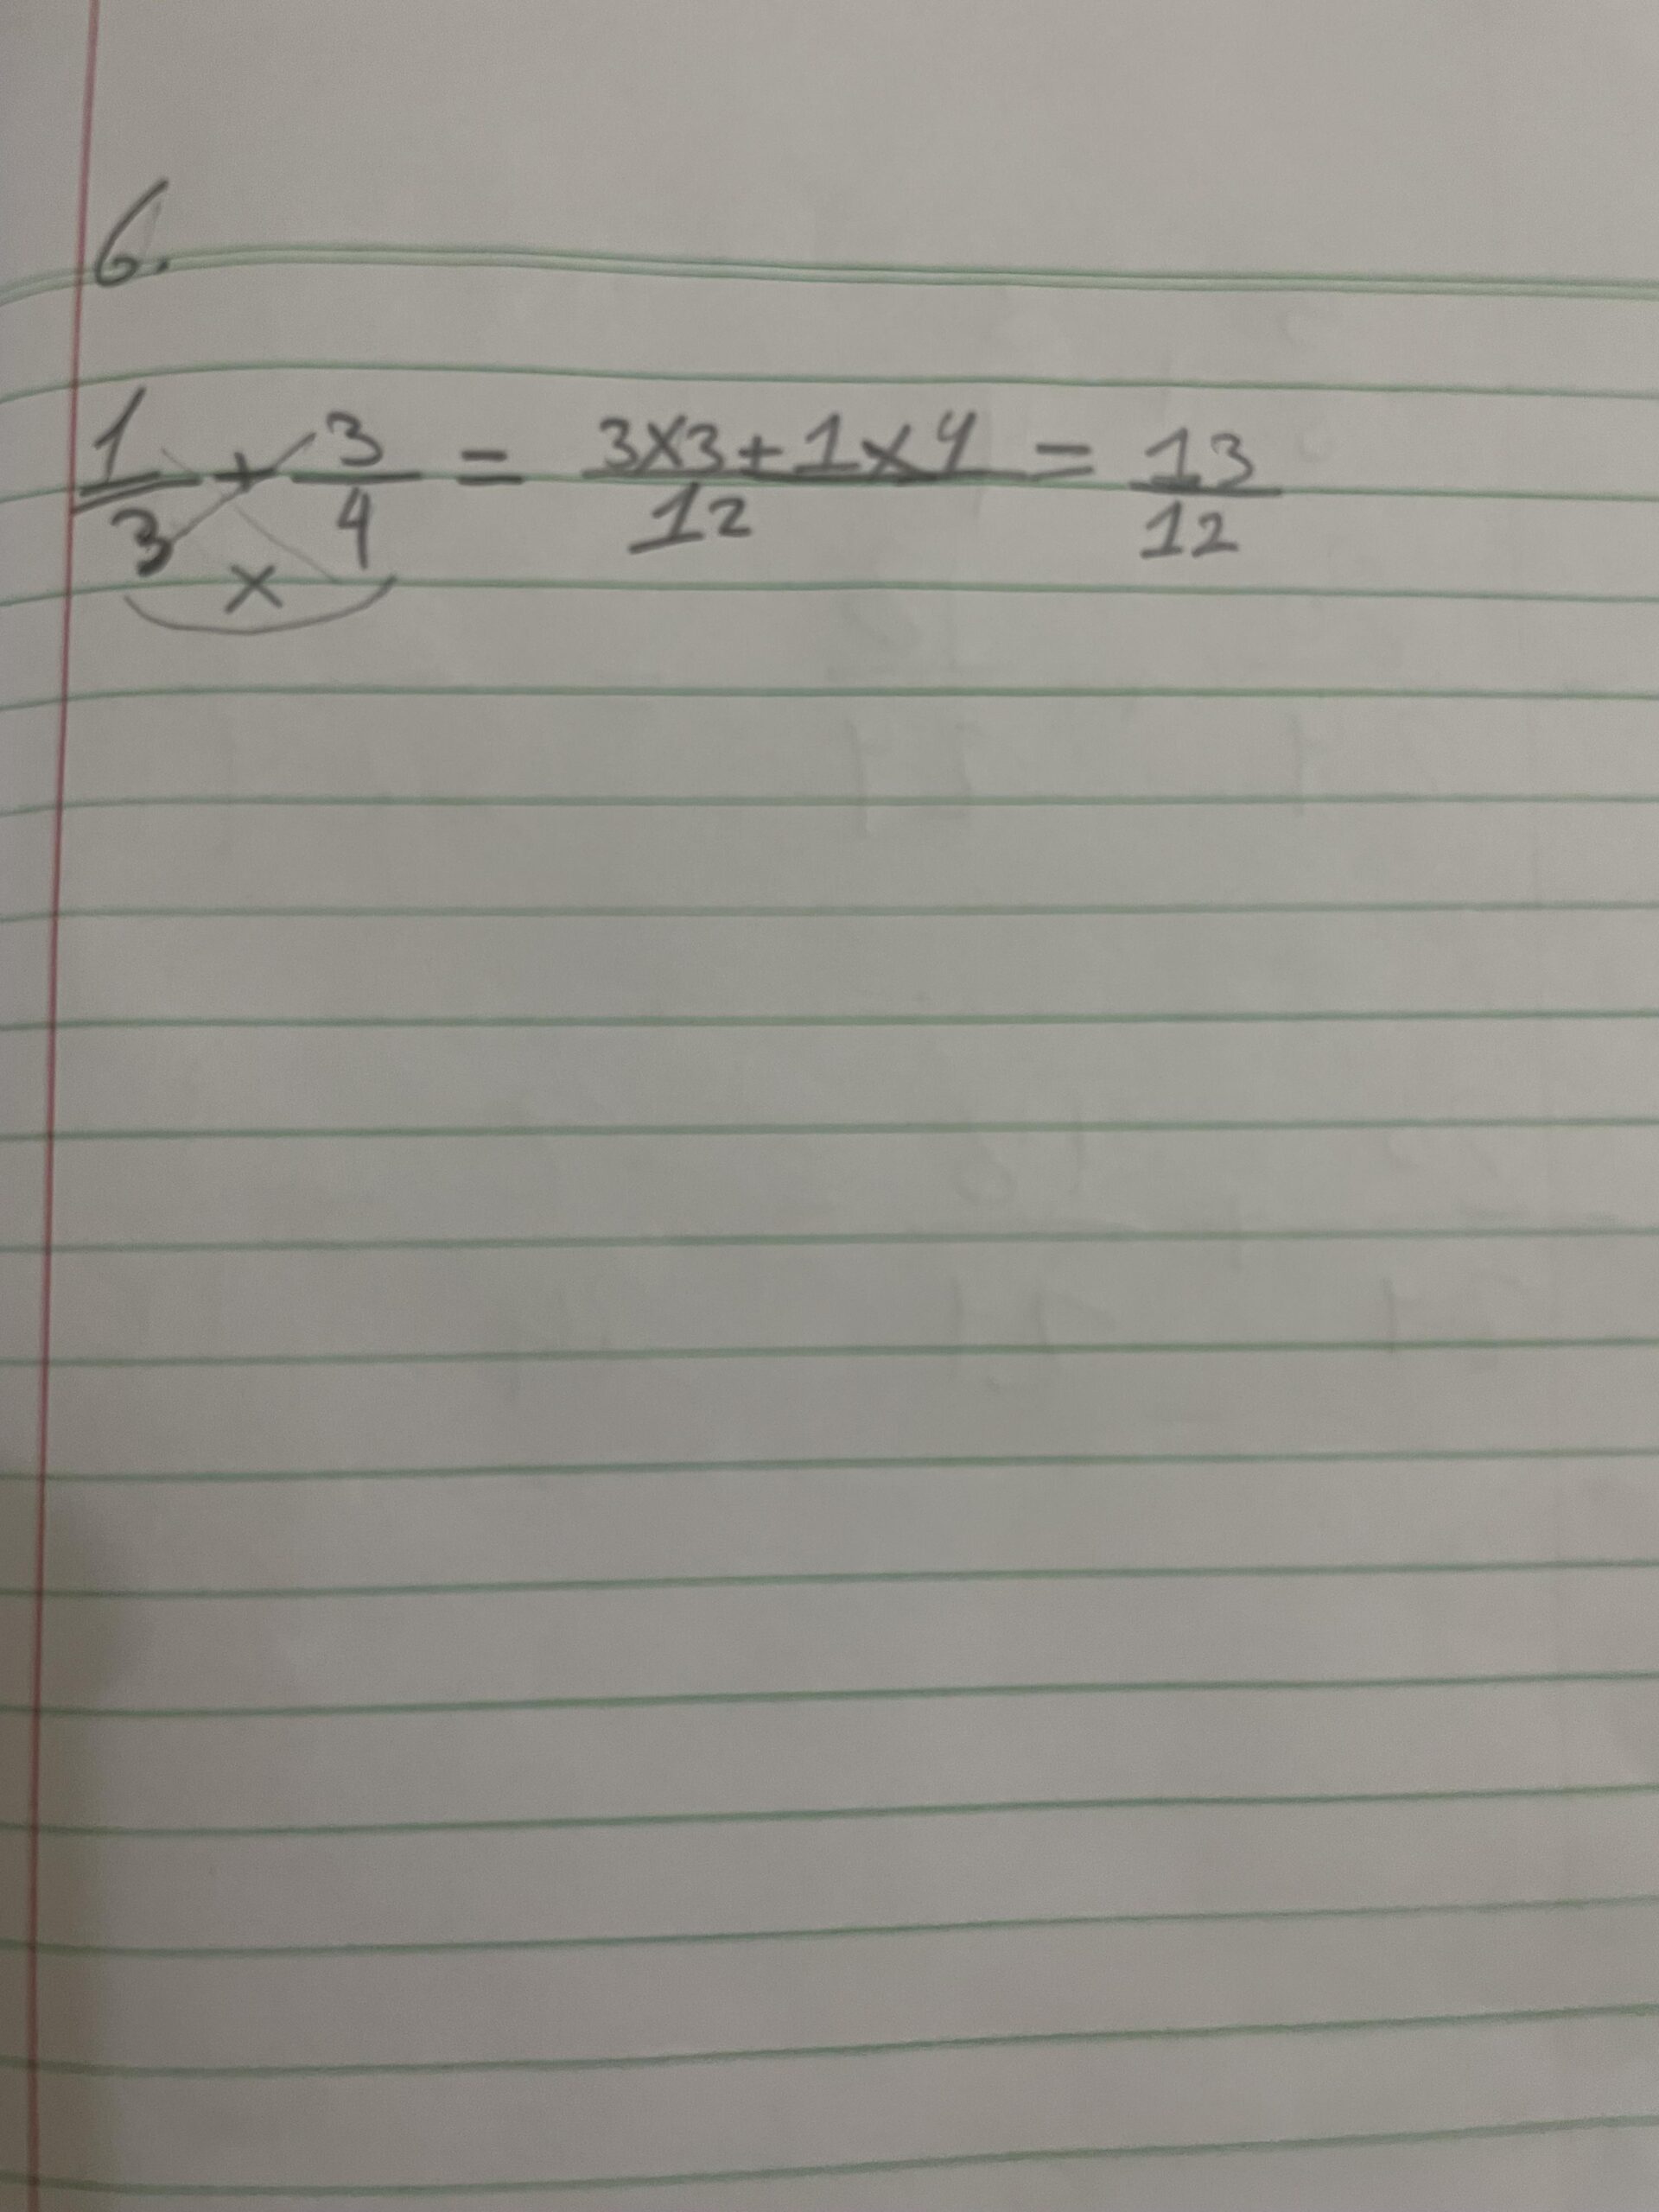 6.
1/3 + 3/4 = 3x3+1x4/12 = 13/12
x